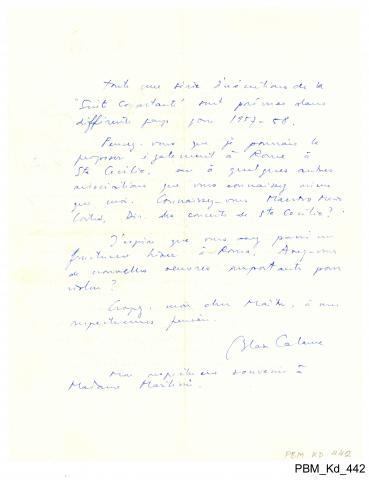 toute une série d'exécutions de la
"Suite Concertante" sont prévues dans
différents pays pour 1957-58.
Pensez-vous que je pourrais le
proposer également à Rome à
Ste Cecilia, ou à quelques autres
associations que vous connaissez mieux
que moi. Connaissez-vous Maestro
Cortese, Dir. des concerts de Ste Cecilia?
J'espère que vous avez passé un
fructueux hiver à Rome. Avez-vous
de nouvelles oeuvres importantes pour
violon?
Croyez, mon cher Maître, à mes
respectueuses pensées.
Blaise Calame
Mon respectueux souvenir à
Madame Martinů.
PBM KD 442
PBM_Kd_442